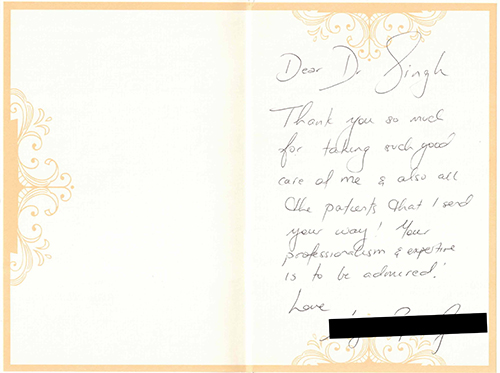 Dear Dr Singh
Thank you so much
for taking such good
care of me & also all
the patients that I send
your way! Your
professionalism & expertise
is to be admired!
Love